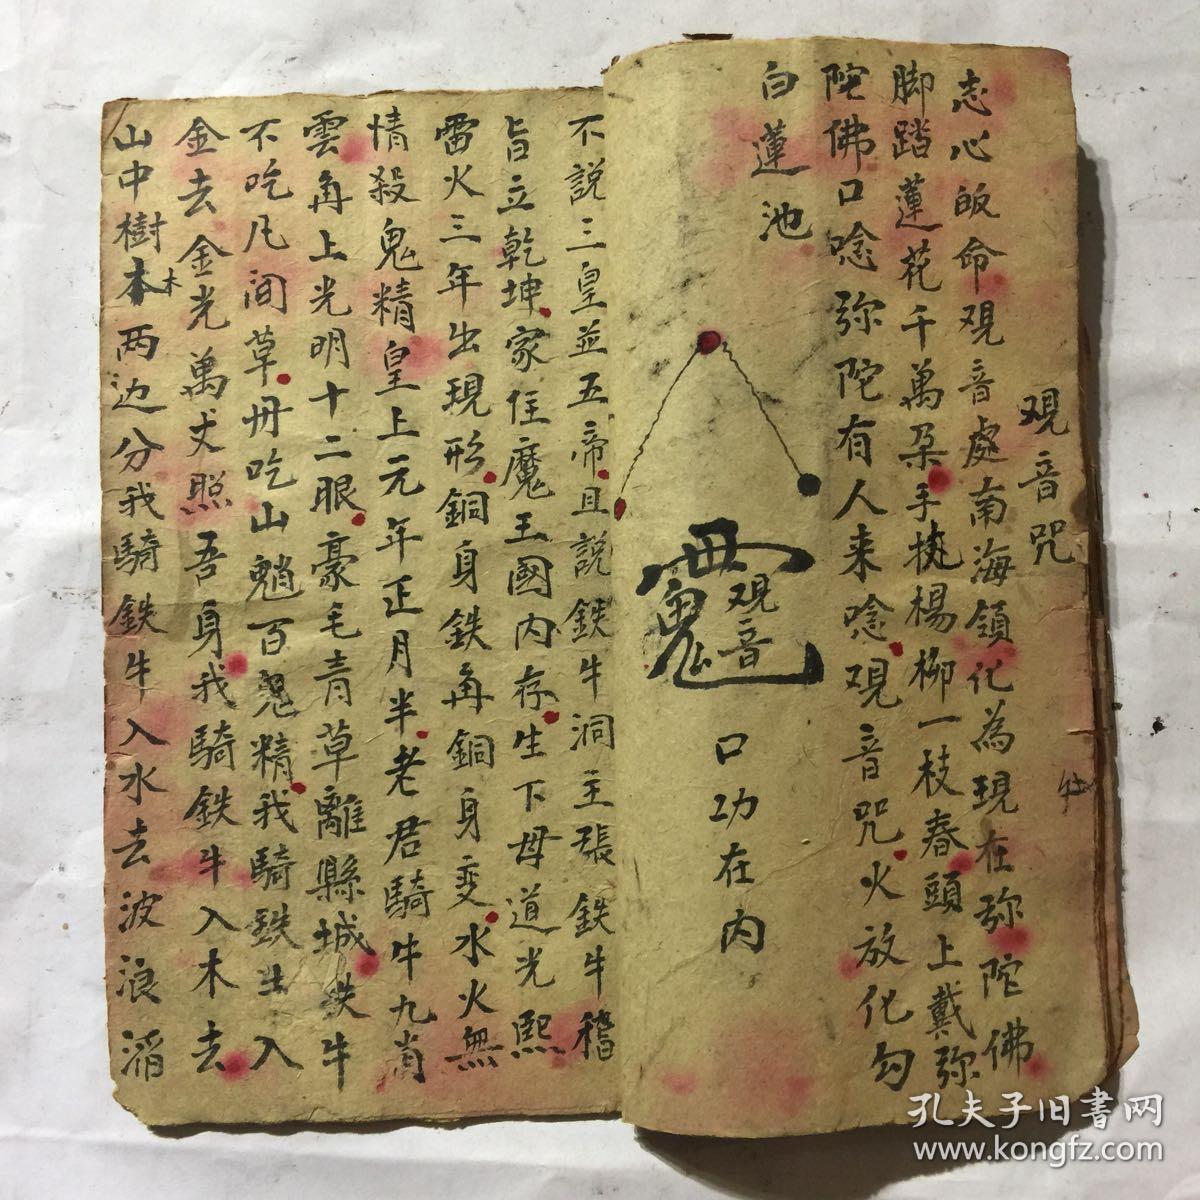 观音咒
志心皈命观音處南海領化為現在弥陀佛
脚踏蓮花千萬朶手执楊柳一枝春頭上戴弥
陀佛口唸弥陀有人来唸观音咒火放化勾
白蓮池
观音
口功在內
不説三皇並五帝且説鉄牛洞主張鉄牛稽
旨立乾坤家住魔王國内存生下母道光熙
雷火三年出現形銅身鉄角銅身变水火無
情殺鬼精皇上元年正月半老君騎牛九肖
雲角上光明十二眼豪毛青草離縣城鉄牛
不吃凡间草毌吃山魈百鬼精我騎鉄牛入
金去金光萬丈照吾身我騎鉄牛入木去
山中樹木两边分我騎鉄牛入水去波浪滔
孔夫子旧書网
www.kongfz.com